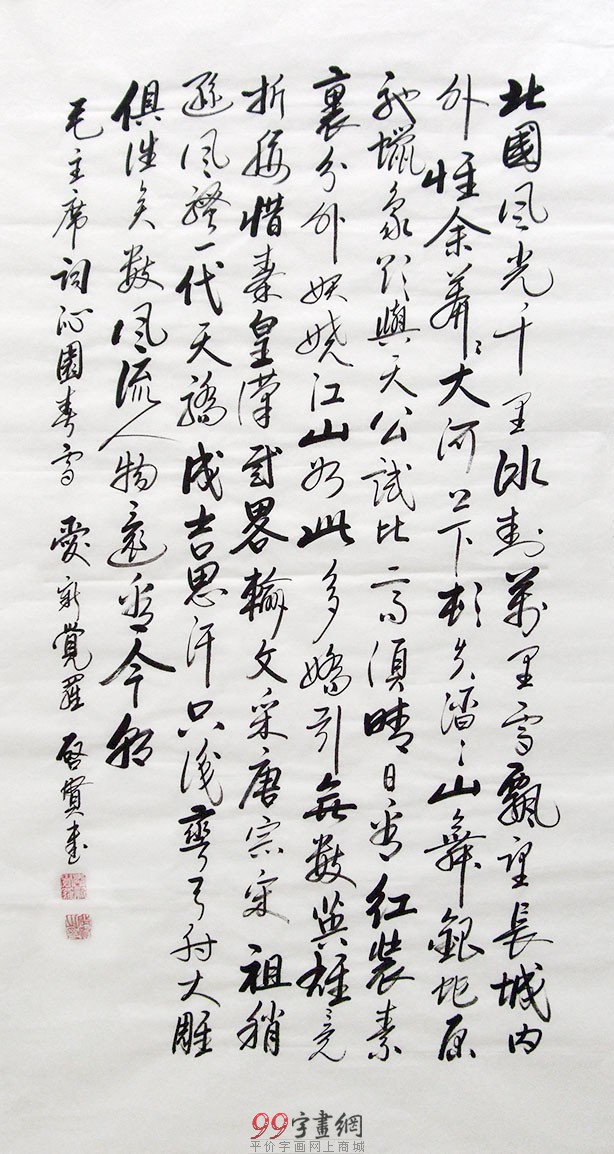 北國风光千里冰封萬里雪飄望長城内
外惟余莽ミ大河上下頓失滔ミ山舞銀蛇原
驰蠟象欲與天公試比高須晴日看红裝素
裹分外妖嬈江山如此多嬌引無數英雄竞
折腰惜秦皇漢武畧輸文采唐宗宋祖稍
遜风骚一代天驕成吉思汗只識彎弓射大雕
俱往矣數风流人物還看今朝
毛主席词沁園春雪 愛新覺羅 啓賢書
99字畫網
平价字画网上商城